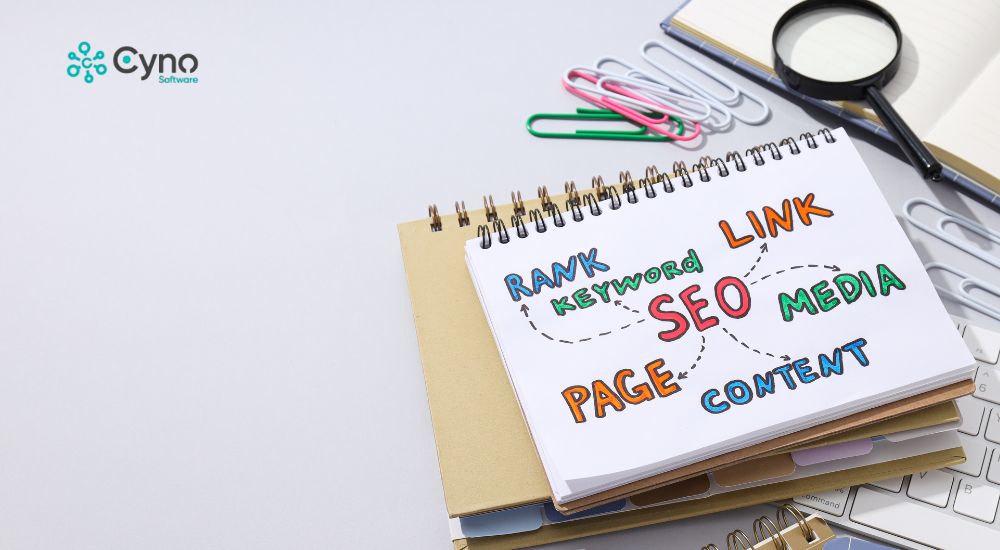 Cyno
Software
LINK
RANK
KEYWORD
SEO
MEDIA
PAGE
CONTENT
6
V
B
command